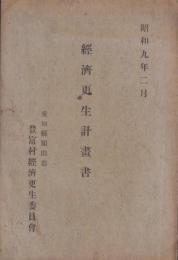 昭和九年二月
經濟更生計畫書
愛知縣額田郡
豊富村經濟更生委員會